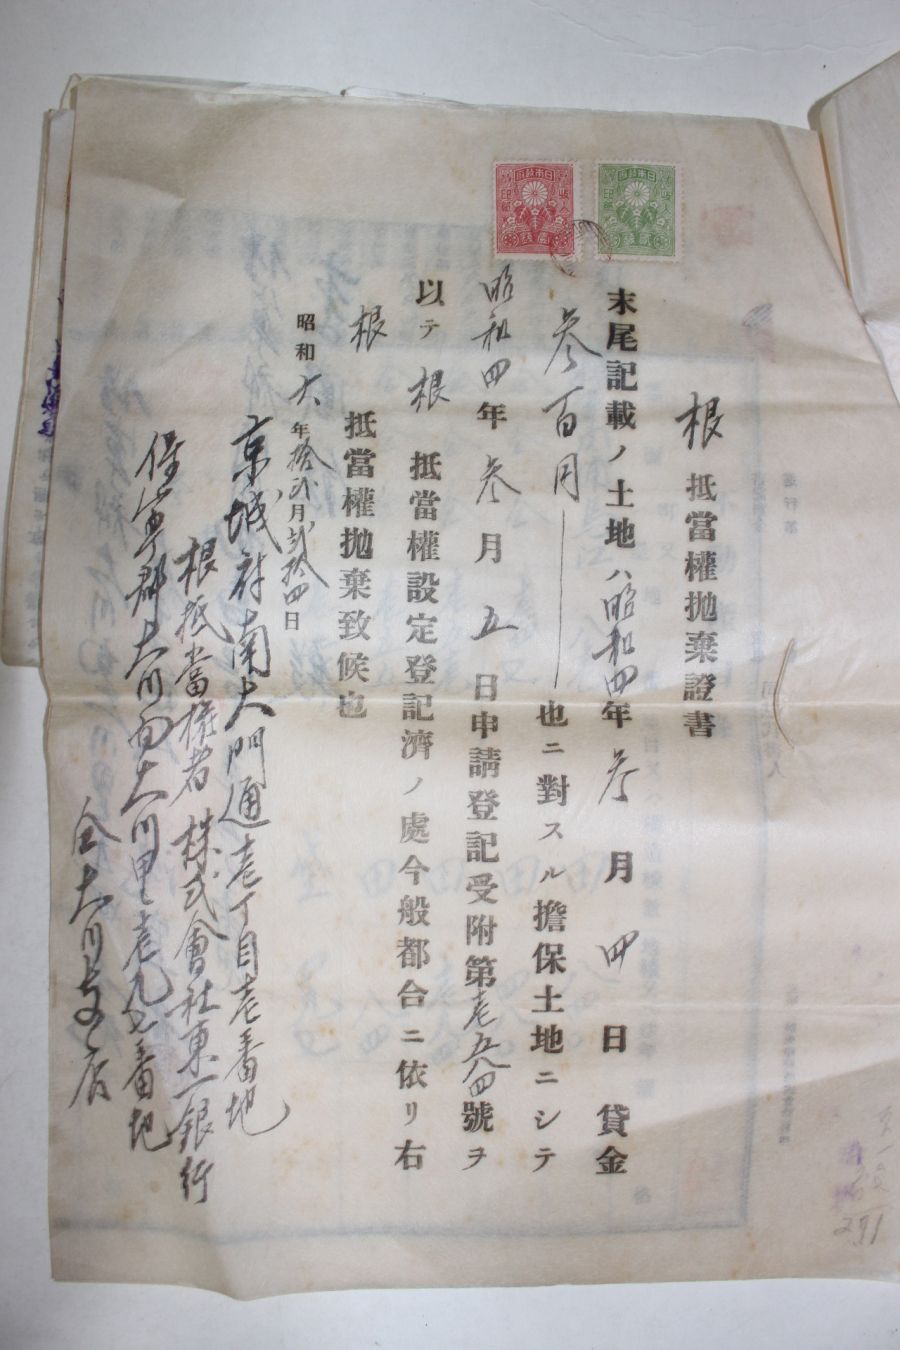 根抵當權抛棄證書
末尾記載ノ土地ハ昭和四年参月四日貸金
参百円也ニ對スル擔保土地ニシテ
昭和四年参月五日申請登記受附第壱五八四號ヲ
以テ根抵當權設定登記濟ノ處今般都合ニ依リ右
根抵當權抛棄致候也
昭和六年拾弐月弐拾四日
京城府南大門通壱丁目壱番地
根抵当権者 株式會社東一銀行
保寧郡大川面大川里壱九七番地
仝大川支店
291